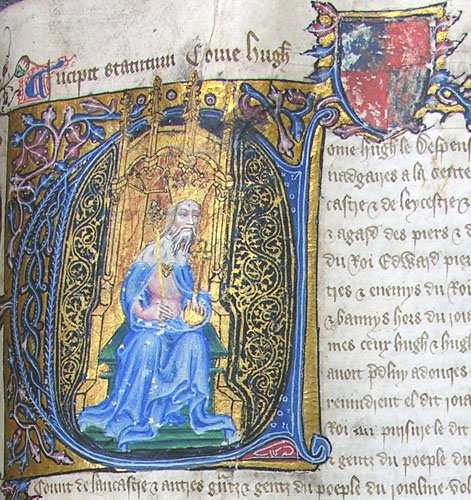 Incipit statutum Come hugh
ome hugh le despens
nadgaires a la
castre & de leycestre &
& agard des piers & d
du Roi Edward pier
tres & enemys du Roi
& bannys hors du roia
mes ceux hugh & hugh
avoit adonqes
revindrent el dit roia
Roi pursuire le dit
& gentz du poeple du
Count de lancastre & autres g̃ntz & gentz du poeple du roialme